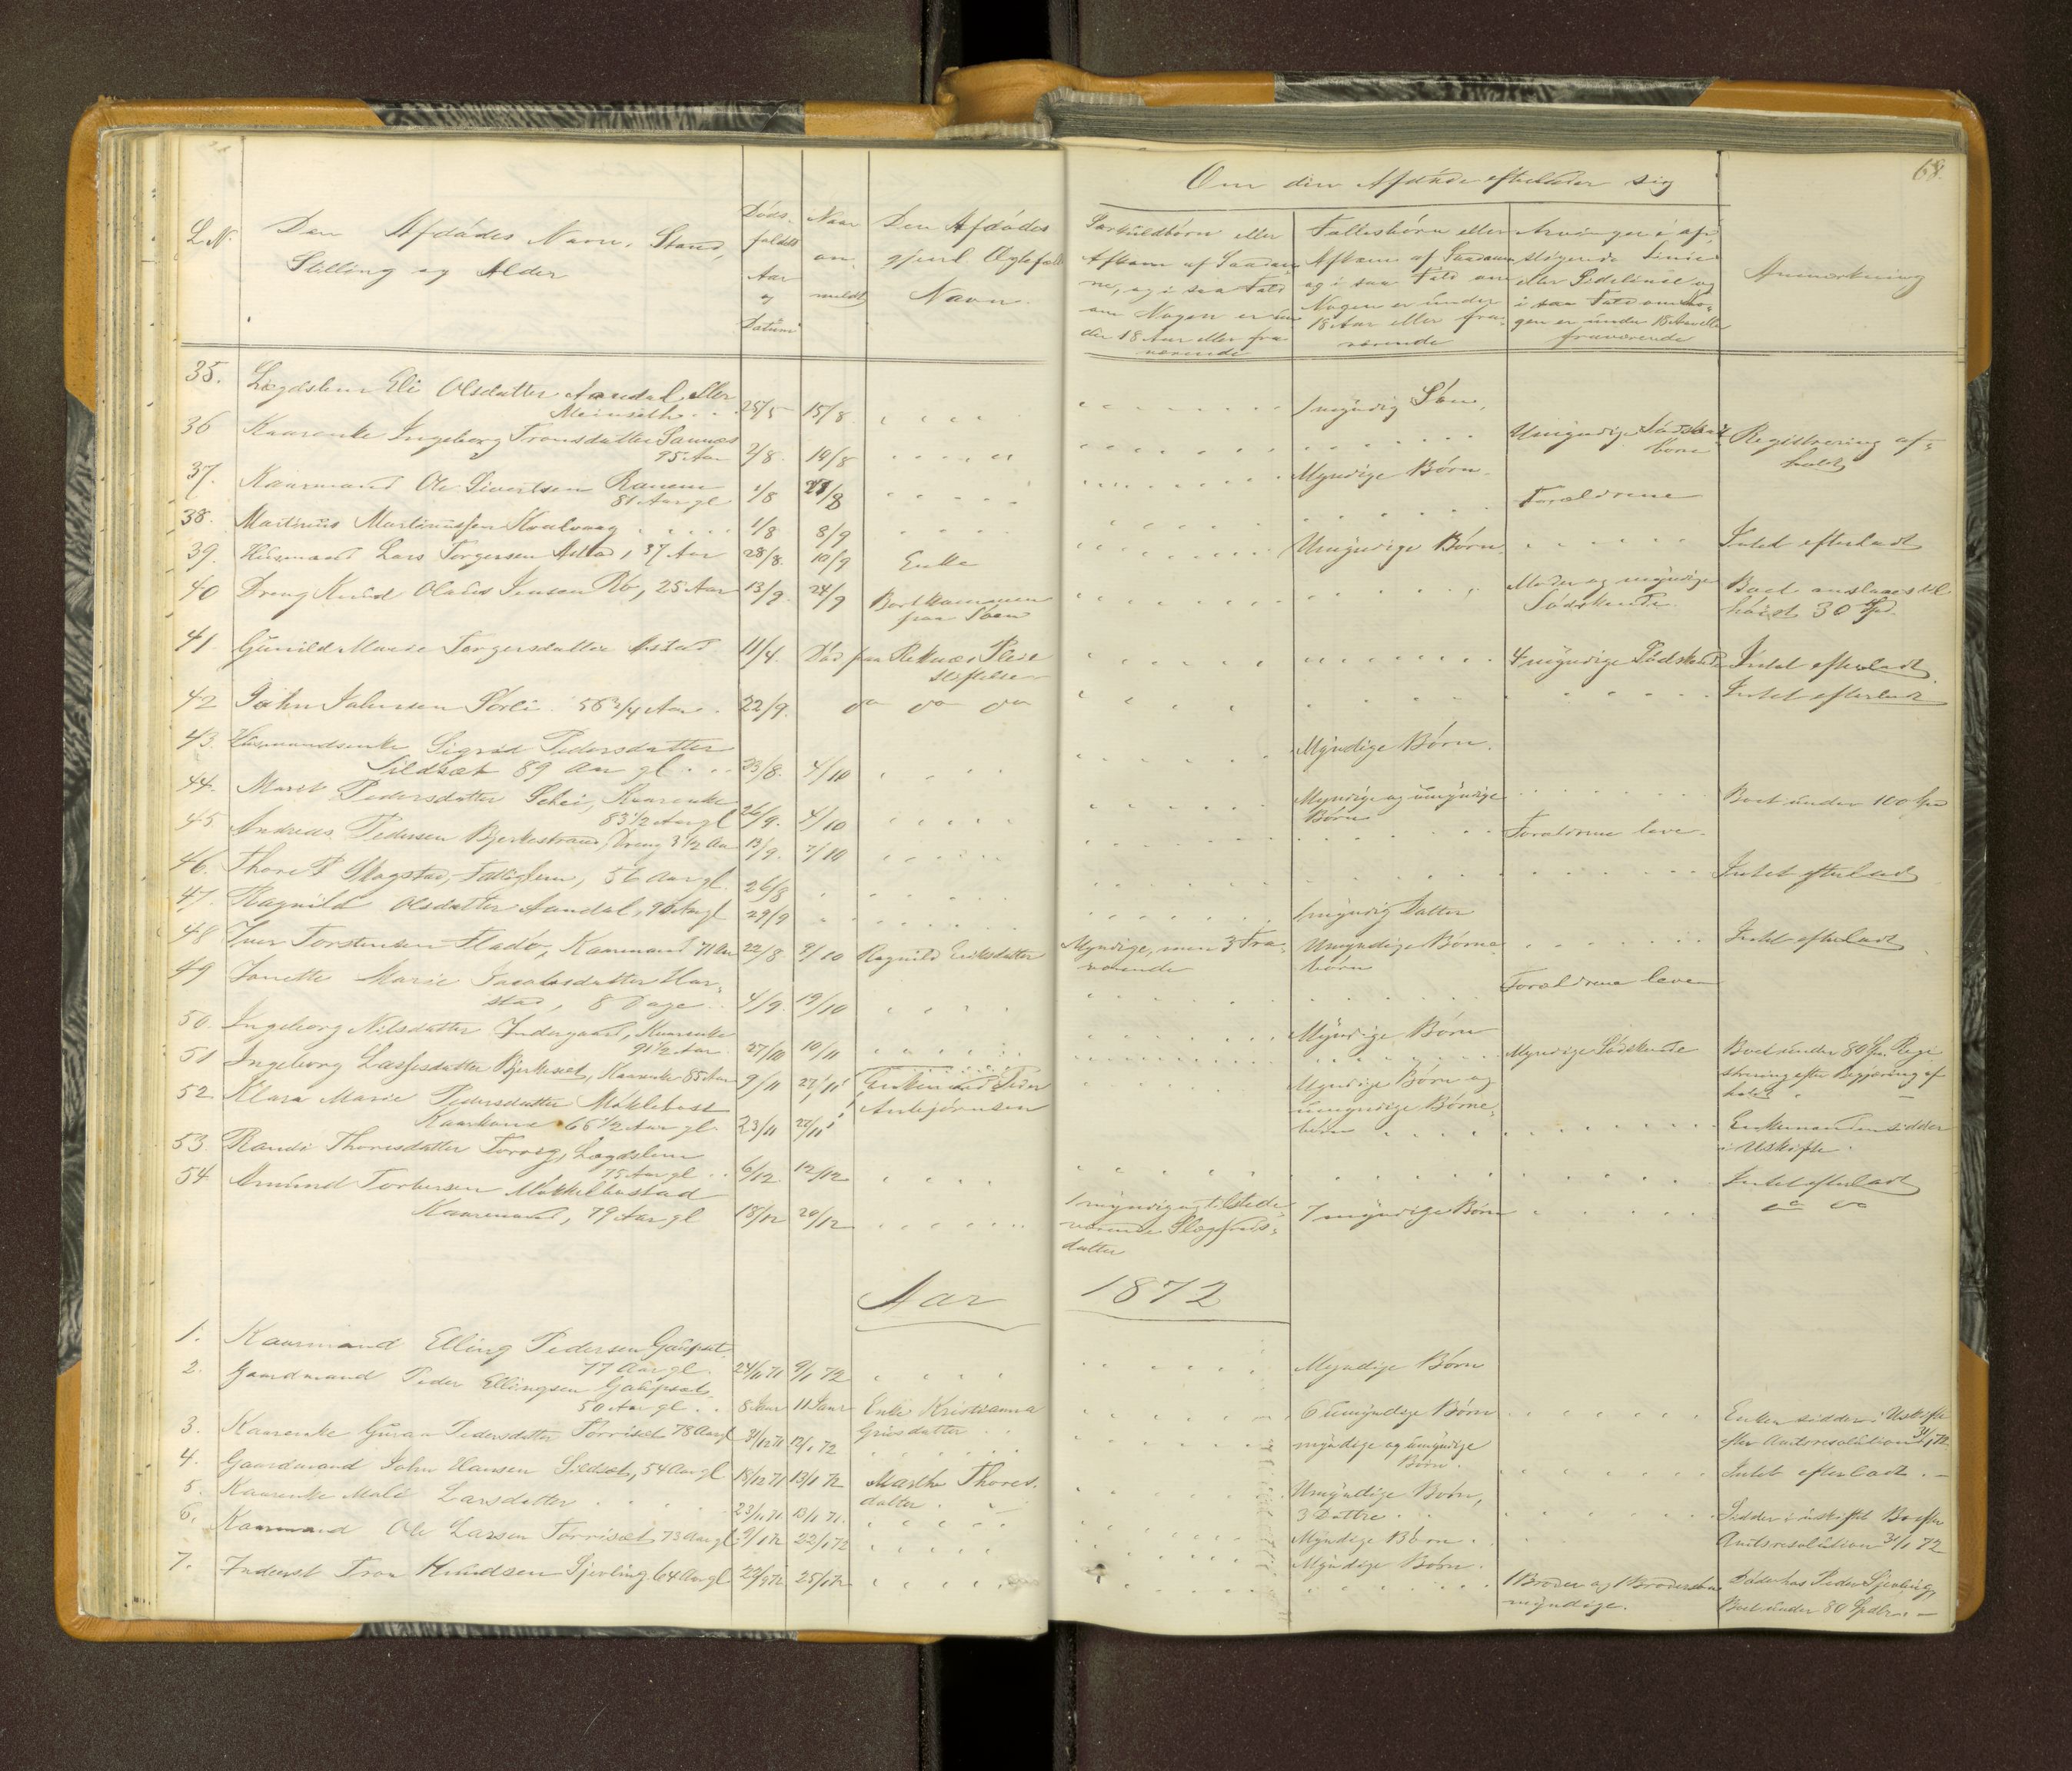 68.
Om den Afdøde efterlader sig
L. N.
Den Afdødes Navn, Stand,
Stilling og Alder
Døds-
faldets
Aar
og
Datum
Naar
an-
meldt
Den Afdødes
gjenl. Ægtefælles
Navn.
Særkuldbørn eller
Afkom af Saadan-
ne, og i saa Fald
om Nogen er un-
der 18 Aar eller fra-
værende
Fællesbørn eller
Afkom af Saadanne
og i saa Fald om
Nogen er under
18 Aar eller fra-
værende
Arvinger i op-
stigende Linie
eller Sidelinie og
i saa Fald om No-
gen er under 18 Aar eller
fraværende
Anmærkning
35. Lægdslem Eli Olsdatter Aandal eller
Meinseth . . 25/5 15/8 1 myndig Søn,
36 Kaarenke Ingeborg Tronsdatter Sannes
95 Aar 2/8 19/8 Umyndige Sødskende-
børn Registrering af-
holdt
37. Kaarmand Ole Sivertsen Ranem
81 Aar gl 1/8 28/8 Myndige Børn.
38. Martinus Martinussen Hvalvaag . . . . 1/8 8/9 Forældrene
39. Husmand Lars Torgersen Astad, 37 Aar 28/8. 10/9 Enke Umyndige Børn. Intet efterladt
40 Dreng Knud Olaus Jensen Rø, 25 Aar 13/9. 24/9 Bortkommen
paa Søen Moder og myndige
Sødskende Boet anslaaes til
høist 30 Spd
41. Gunild Marie Torgersdatter Astad 11/4. Død paa Reknæs Pleie
stiftelse 4 myndige Sødskende Intet efterladt.
42 John Johnsen Sørli. 56 3/4 Aar. 22/9. do do do Intet efterladt
43. Husmandsenke Sigrid Pedersdatter
Sildset 89 Aar gl . . . 23/8. 4/10 Myndige Børn.
44. Marit Pedersdatter Schei, Kaarenke
83 1/2 Aar gl 26/9. 4/10 Myndige og umyndige
Børn Boet under 100 Spd
45. Andreas Pedersen Bjerkestrand, Dreng 3 1/2 Aar 13/9. 7/10 Forældrene leve.
46. Thore P Skogstad, Fattiglem, 56 Aar gl. 26/8 Intet efterladt
47. Ragnild Olsdatter Aandal, 90 Aar gl 29/9 1 myndig Datter
48 Iver Torstensen Fladø, Kaarmand 71 Aar 22/8. 9/10 Ragnild Eriksdatter Myndige, men 3 Fra-
værende Umyndige Børne-
børn Intet efterladt
49 Janette Marie Jacobsdatter Har-
stad, 8 Dage . . 4/9. 19/10 Forældrene leve
50. Ingeborg Nilsdatter Indergaard, Kaarenke
91 1/2 Aar. 27/10 10/11 Myndige Børn
51 Ingeborg Lassesdatter Bjerkeset, Kaarenke 85 Aar 9/11 27/11 Myndige Sødskende Boet under 80 Spd. Regi-
strering efter Begjæring af-
holdt
52 Klara Marie Pedersdatter Møklebost
Kaarkone 66 1/2 Aar gl. 23/11 27/11 Enkemand Peder
Anbjørnsen Myndige Børn og
umyndige Børne-
børn Enkemanden sidder
i Uskifte.
53. Randi Thoresdatter Torvig, Lægdslem
75 Aar gl . . 6/12 12/12 Intet efterladt
54. Amund Torbersen Møkkelbostad
Kaarmand, 79 Aar gl 18/12 20/12 1 myndig og tilstede-
værende Slegfreds-
datter 7 myndige Børn do do
Aar 1872
1. Kaarmand Elling Pedersen Gaupset.
77 Aar gl. 24/11 71 9/1 72 Myndige Børn
2. Gaardmand Peder Ellingsen Gaupset
50 Aar gl . . 8 Jaur 11 Jaur Enke Kristianna
Griisdatter . . 6 umyndige Børn Enken sidder i Uskifte
efter Amtsresolution 31/1 72
3. Kaarenke Guran Pedersdatter Torriset 78 Aar gl 31/12 71 12/1 72 myndige og umyndige
Børn. Intet efterladt. -
4. Gaardmand John Hansen Sildset, 54 Aar gl. 18/12 71 13/1 72 Marthe Thores-
datter. Umyndige Børn,
3 Døttre. Sidder i uskiftet Bo efter
Amtsresolution 31/1 72
5. Kaarenke Mali Larsdatter . . . . . 23/11 71. 13/1 71. Myndige Børn.
6. Kaarmand Ole Larsen Torriset 73 Aar gl. 9/1 72 22/1 72 Myndige Børn.
7. Inderst Tron Knudsen Sjerling 64 Aar gl 22/9 72 25/1 72 1 Broder og 1 Broderbarn
myndige. Døde hos Peder Sjerling,
Boet under 80 Spdlr. -